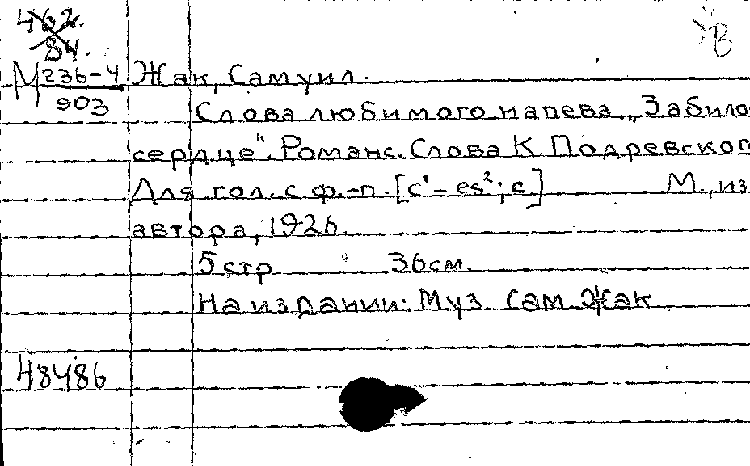 462.
84.
В
М 236-4
903
Жак, Самуил.
Слова любимого напева „Забило
сердце". Романс. Слова К Подревског
Для гол. с ф.-п. [c¹ - es²; c] М., из
автора, 1926.
5 стр 36 см.
На издании: Муз Сам. Жак
48486